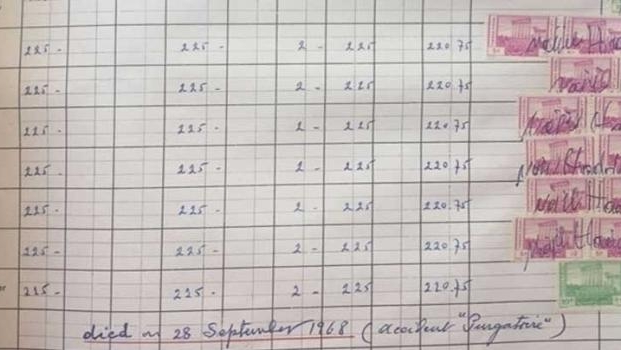 225 - 225 - 2 - 225 220.75
225 - 225 - 2 - 225 220.75
225 - 225 - 2 - 225 220.75
225 - 225 - 2 - 225 220.75
225 - 225 - 2 - 225 220.75
225 - 225 - 2 - 225 220.75
225 - 225 - 2 - 225 220.75
died on 28 September 1968 (accident "Purgatoire")